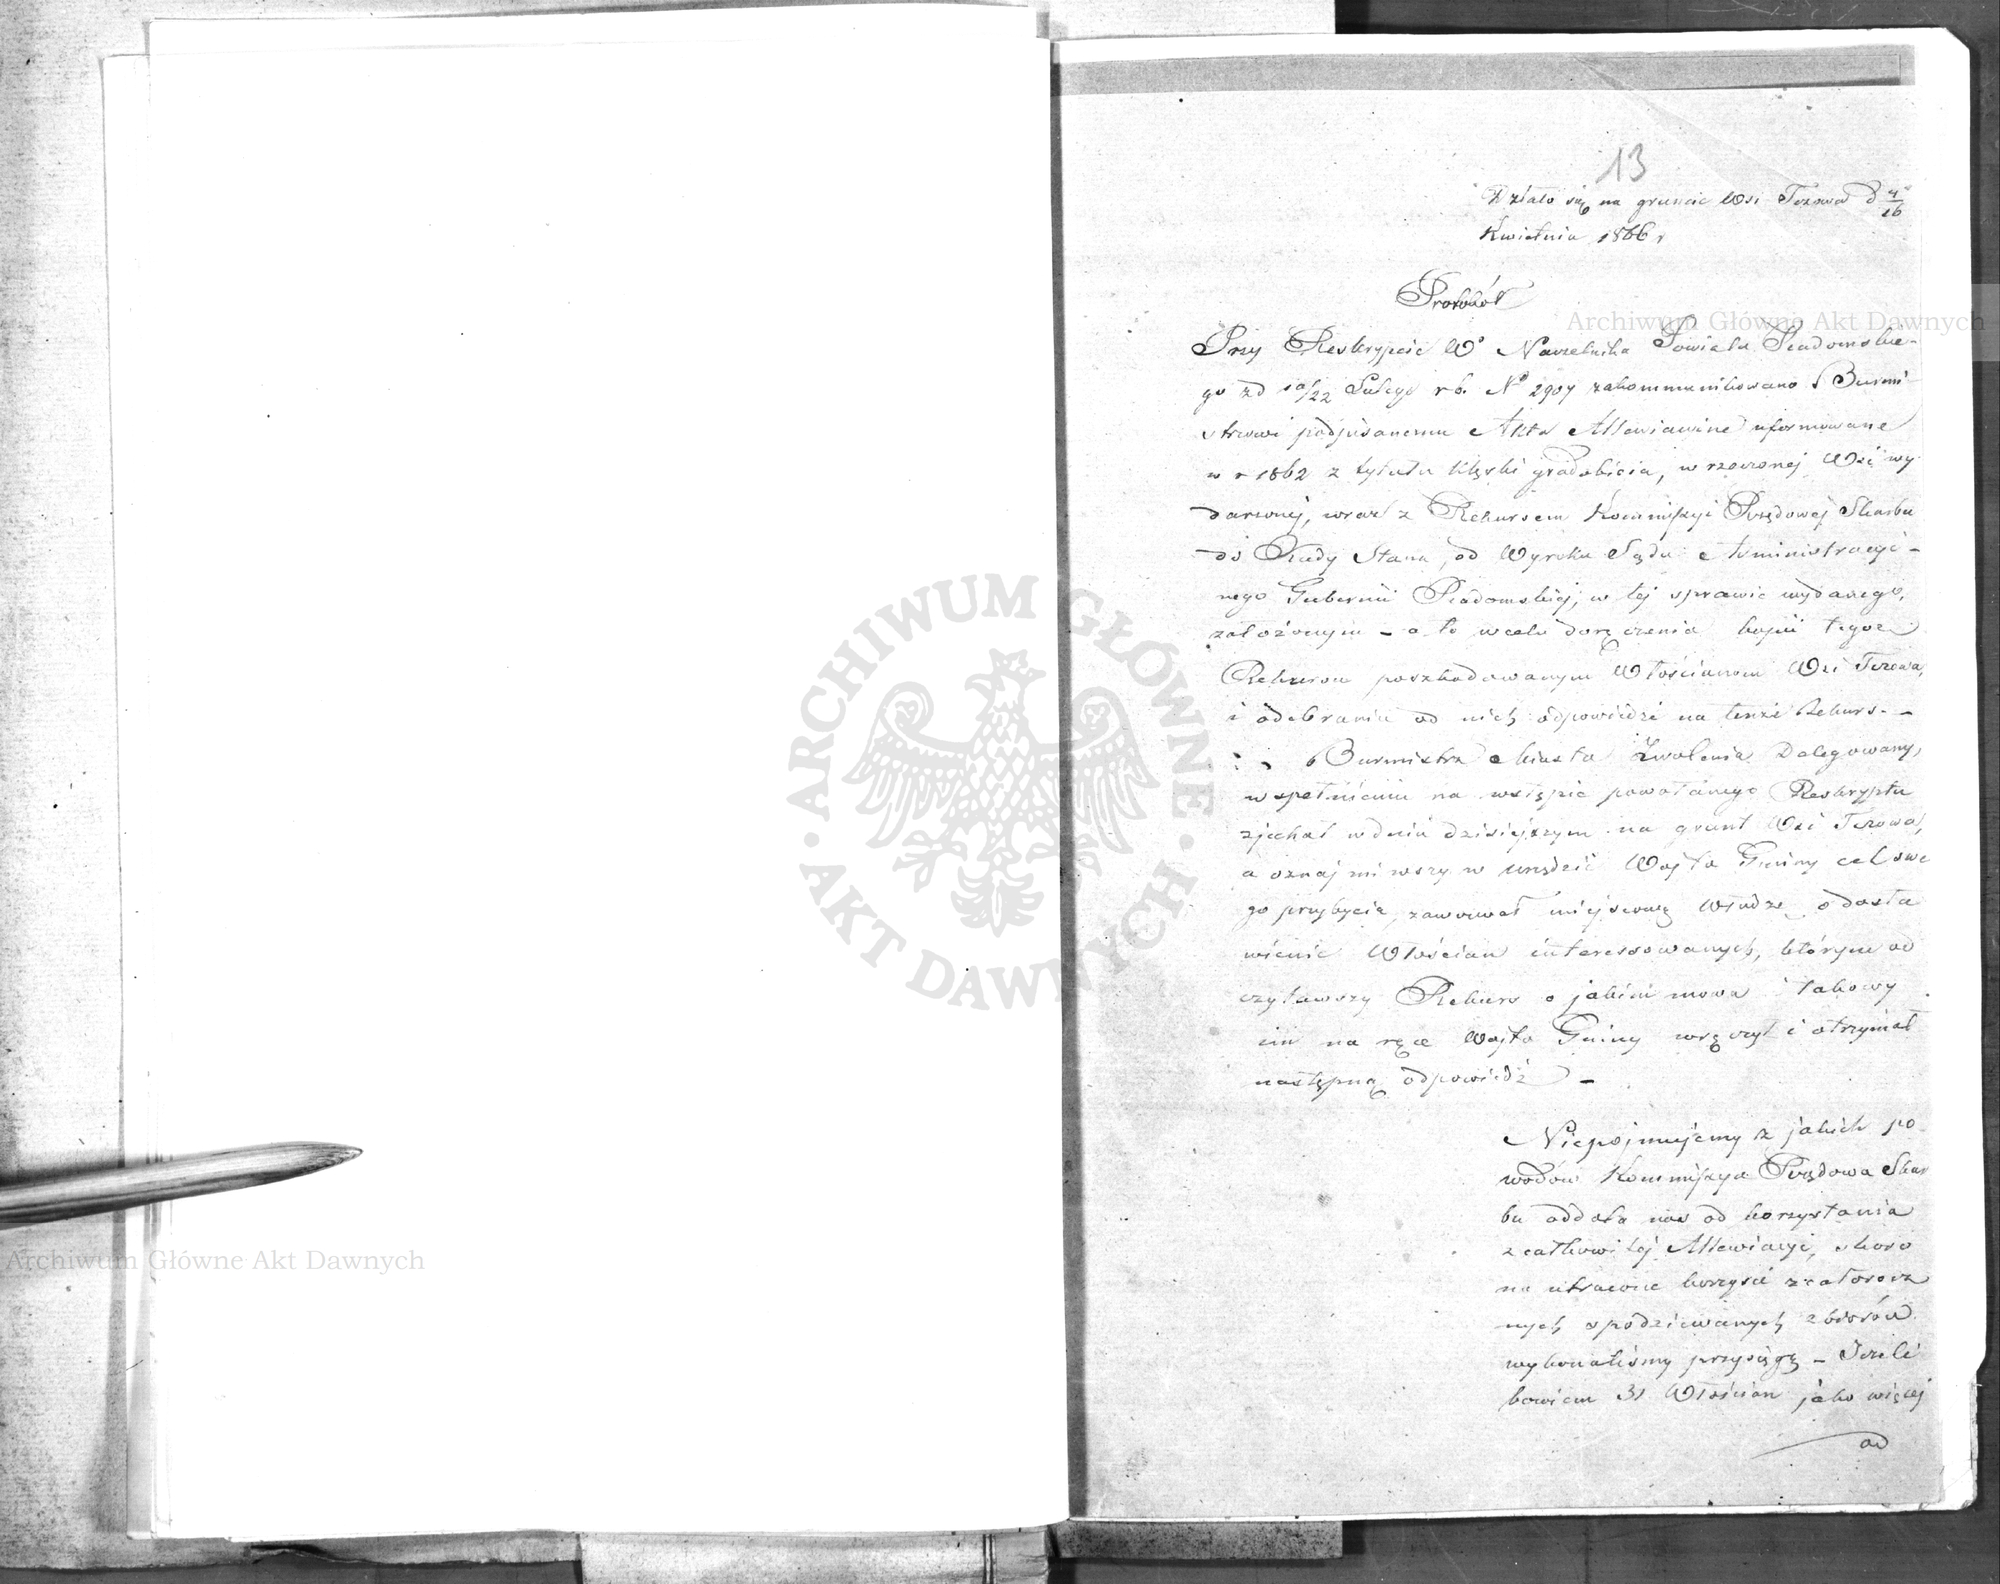 13
Działo się na gruncie Wsi Tczowa d 4/16
Kwietnia 1866 r
Protokół
Przy Reskrypcie Wo Naczelnika Powiatu Radomskie-
go z d 10/22 Lutego r b. No 2907 zakommunikowano Burmi-
strzowi podpisanemu Akta Allewiacyine uformowane
w r 1862 z tytułu klęski gradobicia, w rzeczonej Wsi wy
darzonej, wraz z Rekursem Kommissyi Rządowej Skarbu
do Rady Stanu, od Wyroku Sądu Administracyi-
nego Gubernii Radomskiej, w tej sprawie wydanego,
założonym – a to w celu doręczenia kopii tegoż
Rekursu poszkodowanym Włościanom Wsi Tczowa,
i odebrania od nich odpowiedzi na tenże Rekurs. –
Burmistrz Miasta Zwolenia Delegowany,
w spełnieniu na wstępie powołanego Reskryptu
zjechał w dniu dzisiejszym na grunt Wsi Tczowa,
a oznajmiwszy w urzędzie Wójta Gminy cel swe
go przybycia, zawezwał miejscową Władzę o dosta
wienie Włościan interessowanych, którym od
czytawszy Rekurs o jakim mowa takowy
im na ręce Wójta Gminy wręczył i otrzymał
następną odpowiedź –
Niepojmujemy z jakich po-
wodów Kommissya Rządowa Skar
bu oddala nas od korzystania
z całkowitej Allewiacyi, skoro
na utracone korzyści z całorocz
nych spodziewanych zbiorów
wykonaliśmy przysięgę – Jeżeli
bowiem 31 Włościan jako więcej
od
Archiwum Główne Akt Dawnych
Archiwum Główne Akt Dawnych
ARCHIWUM GŁÓWNE AKT DAWNYCH